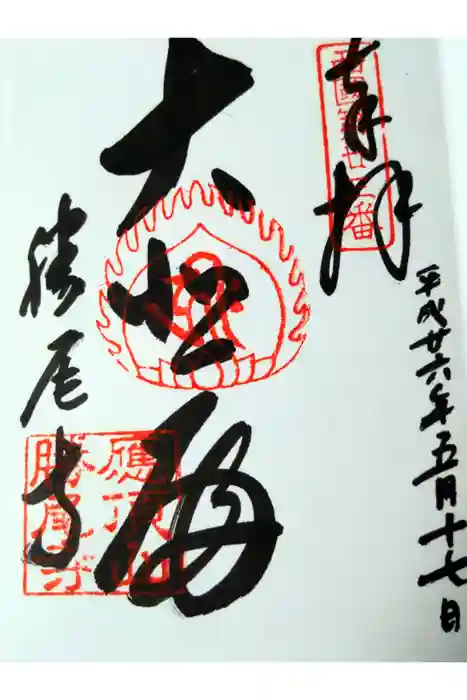 奉拝
西国第廿三番
平成廿六年五月十七日
大悲殿
勝尾寺
應頂山
勝尾寺